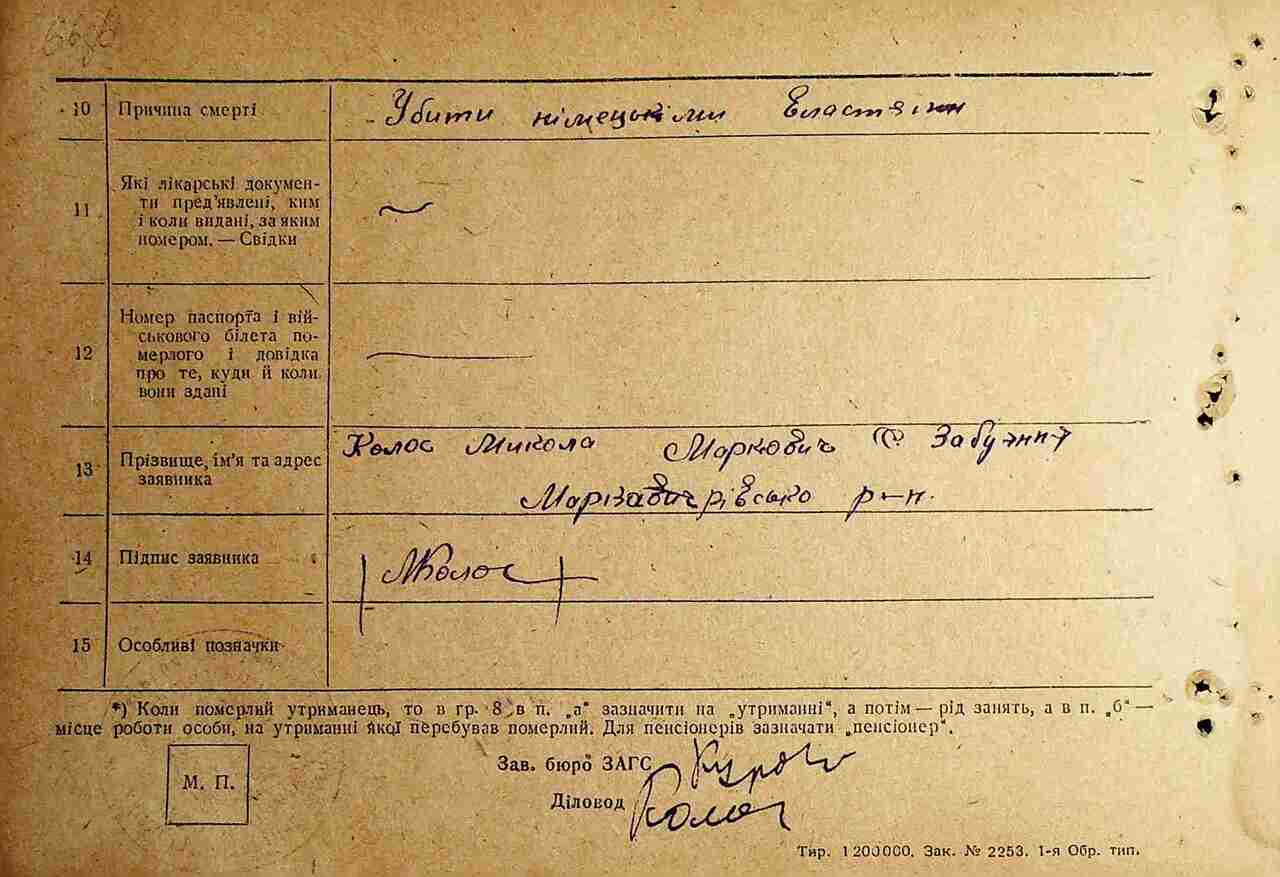 10 Причина смерті Убити німецькіми Властями
11 Які лікарські докумен-
ти пред’явлені, ким
і коли видані, за яким
номером. — Свідки
12 Номер паспорта і вій-
ськового білета по-
мерлого і довідка
про те, куди й коли
вони здані
13 Прізвище, ім’я та адрес
заявника
Колос Микола Маркович С
р-н.
14 Підпис заявника МКолос
15 Особливі позначки
*) Коли померлий утриманець, то в гр. 8 в п. „а“ зазначити на „утриманні“, а потім — рід занять, а в п. „б“ —
місце роботи особи, на утриманні якої перебував померлий. Для пенсіонерів зазначати „пенсіонер“.
М. П.
Зав. бюро ЗАГС
Діловод
Тир. 1200000. Зак. № 2253. 1-я Обр. тип.